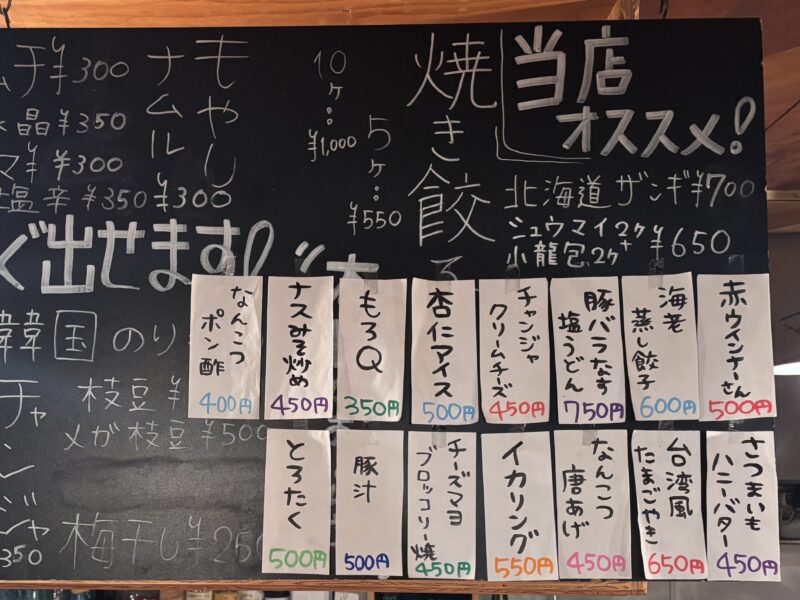 当店
オススメ!
北海道 ザンギ ¥700
シュウマイ2ケ+
小龍包2ケ
¥650
焼き餃子
5ケ:
¥550
10ケ:
¥1,000
もやし
ナムル
¥300
ムチ ¥300
晶 ¥350
マ ¥300
塩辛 ¥350
ぐ出せます!
韓国のり
枝豆 ¥
メガ枝豆 ¥500
チャンジャ
350
梅干し ¥250
赤ウインナーさん
500円
海老
蒸し餃子
600円
豚バラなす
塩うどん
750円
チャンジャ
クリームチーズ
450円
杏仁アイス
500円
もろQ
350円
ナスみそ炒め
450円
なんこつ
ポン酢
400円
さつまいも
ハニーバター
450円
台湾風
たまごやき
650円
なんこつ
唐あげ
450円
イカリング
550円
チーズマヨ
ブロッコリー焼
450円
豚汁
500円
とろたく
500円